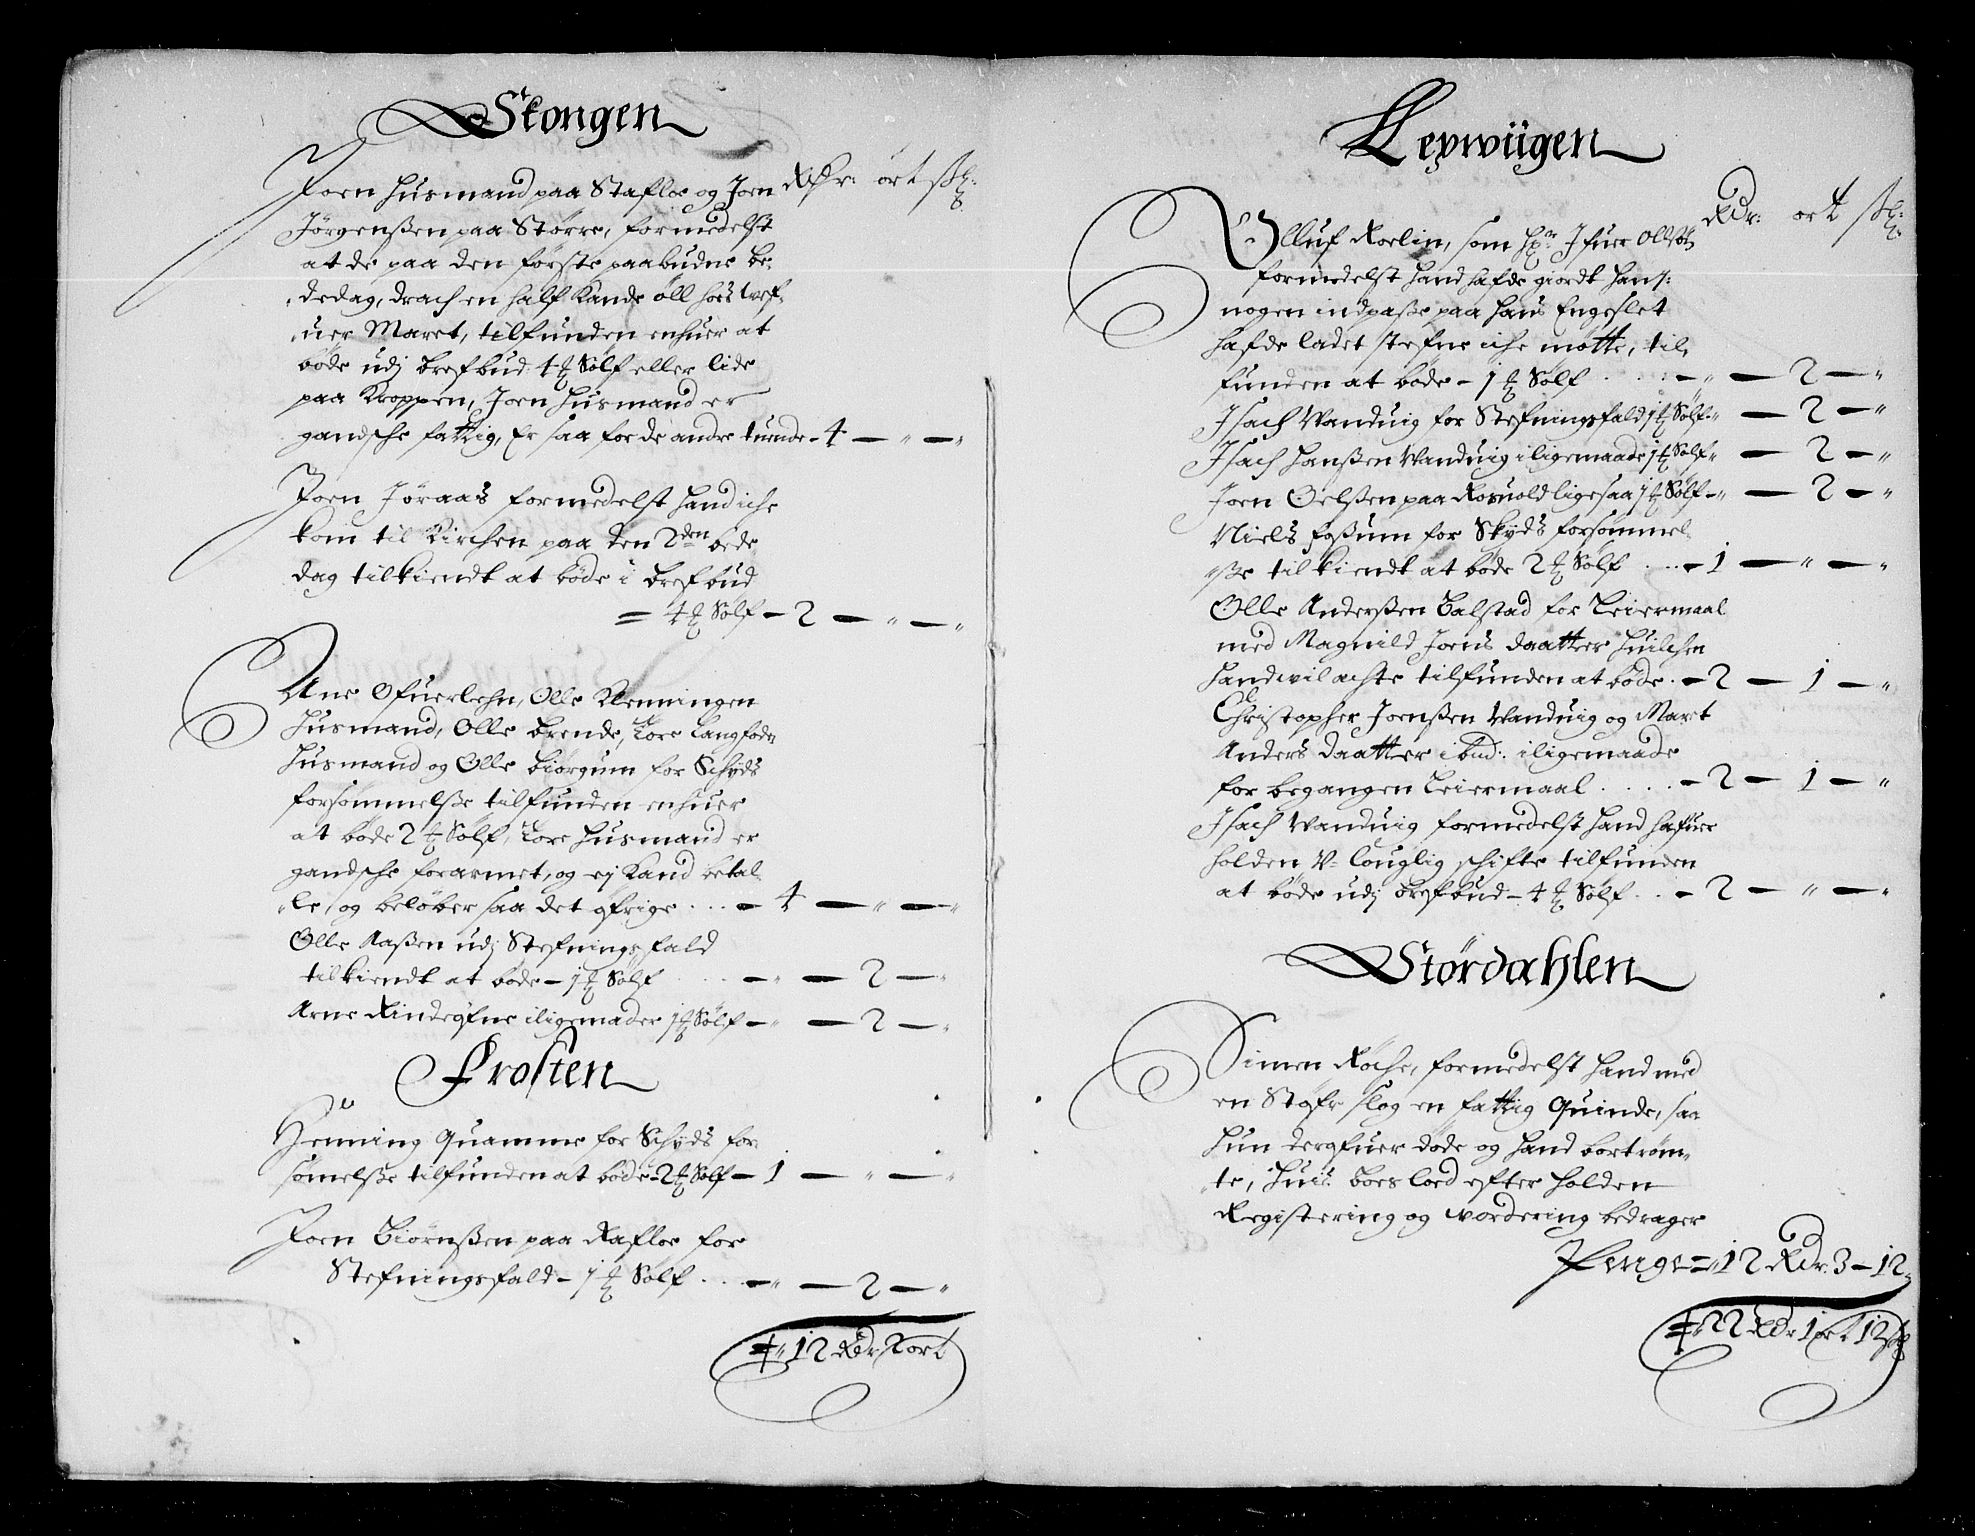 Skongen
Rdr: ort sk:
Joen Husmand paa Stafloe og Joen
Jörgenßen paa Större, formedelst
at de paa den förste paabudne be,,
,,dedag, drach en half Kande öll hoes
,,uer Maret, tilfunden enhuer at
böde udj bresbud 4 ℔ Sölf eller lide
paa Kroppen, Joen Husmand er
gandsche fattig, Er saa for de andre tuende - 4 — „ — „
Joen Jöraas formedelst hand iche
kom til Kirchen paa den 2den bede
dag tilkiendt at böde i bresbud
= 4 ℔ Sölf - 2 — „ — „
Arne Ofuerlehn, Olle Klenningen
Husmand, Olle Brende, Tore
Husmand og Olle Biörgum for Schyds
forsömmelße tilfunden enhuer
at böde 2 ℔ Sölf, Tore Husmand er
gandsche forarmet, og ej Kand betal,,
,,le, og belöber saa det öfrige . . . - 4 — „ — „
Olle Aaßen udj Stefningsfald
tilkiendt at böde - 1 ℔ Sölf . . . — „ — 2 — „
Arne Rindöfne iligemader 1 ℔ Sölf — „ — 2 — „
Frosten
Henning Quamme for Schyds for
sömelße tilfunden at böde - 2 ℔ Sölf - 1 — „ — „
Joen Biörnßen paa Rafloe for
Stefningsfald - 1 ℔ Sölf . . . — „ — 2 — „
„ 12 Rdr 2 ort
Leywiigen
Rdr: ort sk:
Olluf Roelin, som Hr Ifuer
formedelst hand hafde giordt Hans:
nogen indpaße paa Hans Engeslet
hafde ladet stefne iche mötte, til,,
funden at böde - 1 ℔ Sölf . . . : - „ — 2 — „
Isach Vanduig for Stefningsfald 1 ℔ Sölf - „ — 2 — „
Isach Hanßen Vanduig iligemaade 1 ℔ Sölf „ — 2 — „
Joen Oelßen paa Rosuold ligesaa 1 ℔ Sölf - „ — 2 — „
Niels Foßum for Skyds forsömmel,,
,,ße tilkiendt at böde 2 ℔ Sölf . . . - 1 — „ — „
Olle Anderßen Balstad for Leiermaal
med Magnild Joens daatter huilchen
hand vil achte tilfunden at böde . - 2 — 1 — „
Christopher Joenßen Vanduig og Maret
Anders daatter ibid: iligemaade
for begangen Leiermaal . . . . - 2 — 1 — „
Isach Vanduig formedelst hand hafuer
holden V= louglig schifte tilfunden
at böde udj bresbud - 4 ℔ Sölf . . - 2 — „ — „
Stördahlen
Simen Röche, formedelst hand med
en Stöfr slog en fattig Quinde, saa
hun deröfuer döde og hand bortröm,,
,,te, Huis boes loed efter holden
Registering og vordering bedrager
Penge = „ 12 Rdr. 3 - 12
„ 22 Rdr 1 ort 12 sk